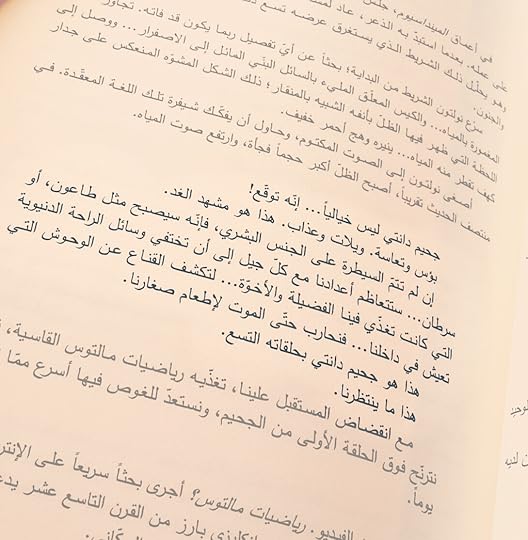 في أعماق الميندا‌سيوم، جلس
على عمله. بعدما استبدّ به الذعر، عاد لمش
وهو يحلّل ذلك الشريط الذي يستغرق عرضه تسع
والجنون.
سرّع نولتون الشريط من البداية؛ بحثاً عن أيّ تفصيل ربما يكون قد فاته. تجاوز
المغمورة بالمياه... والكيس المعلّق المليء بالسائل البنّي المائل إلى الاصفرار... ووصل إلى
اللحظة التي ظهر فيها الظلّ بأنفه الشبيه بالمنقار؛ ذلك الشكل المشوّه المنعكس على جدار
كهف تقطر منه المياه... ينيره وهج أحمر خفيف.
أصغى نولتون إلى الصوت المكتوم، وحاول أن يفكّك شيفرة تلك اللغة المعقّدة. في
منتصف الحديث تقريباً، أصبح الظلّ أكبر حجماً فجأة، وارتفع صوت المياه.
جحيم دانتي ليس خيالياً... إنّه توقّع!
بؤس وتعاسة. ويلات وعذاب. هذا هو مشهد الغد.
إن لم تتمّ السيطرة على الجنس البشري، فإنّه سيصبح مثل طاعون، أو
سرطان... ستتعاظم أعدادنا مع كلّ جيل إلى أن تختفي وسائل الراحة الدنيوية
التي كانت تغذّي فينا الفضيلة والأخوّة... لتكشف القناع عن الوحوش التي
تعيش في داخلنا... فنحارب حتّى الموت لإطعام صغارنا.
هذا هو جحيم دانتي بحلقاته التسع.
هذا ما ينتظرنا.
مع انقضاض المستقبل علينا، تغذّيه رياضيات مالتوس القاسية،
نترنّح فوق الحلقة الأولى من الجحيم، ونستعدّ للغوص فيها أسرع ممّا
يوماً.
الفيديو. رياضيات مالتوس؟ أجرى بحثاً سريعاً على الإنتر
إنكليزي بارز من القرن التاسع عشر يدع